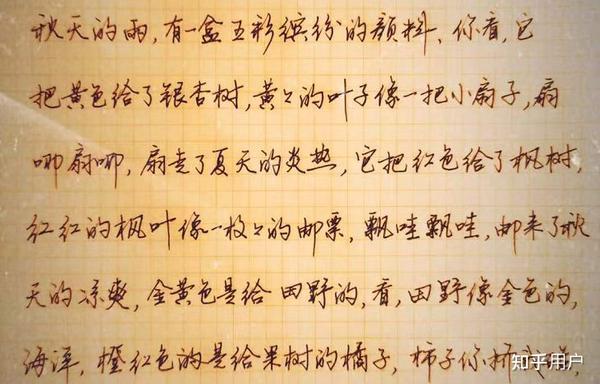 秋天的雨,有一盒五彩缤纷的颜料、你看,它
把黄色给了银杏树,黄々的叶子像一把小扇子,扇
唧扇唧,扇走了夏天的炎热,它把红色给了枫树,
红红的枫叶像一枚々的邮票,飘哇飘哇,邮来了秋
天的凉爽,金黄色是给田野的,看,田野像金色的,
海洋,橙红色的是给果树的橘子,柿子你挤
知乎用户